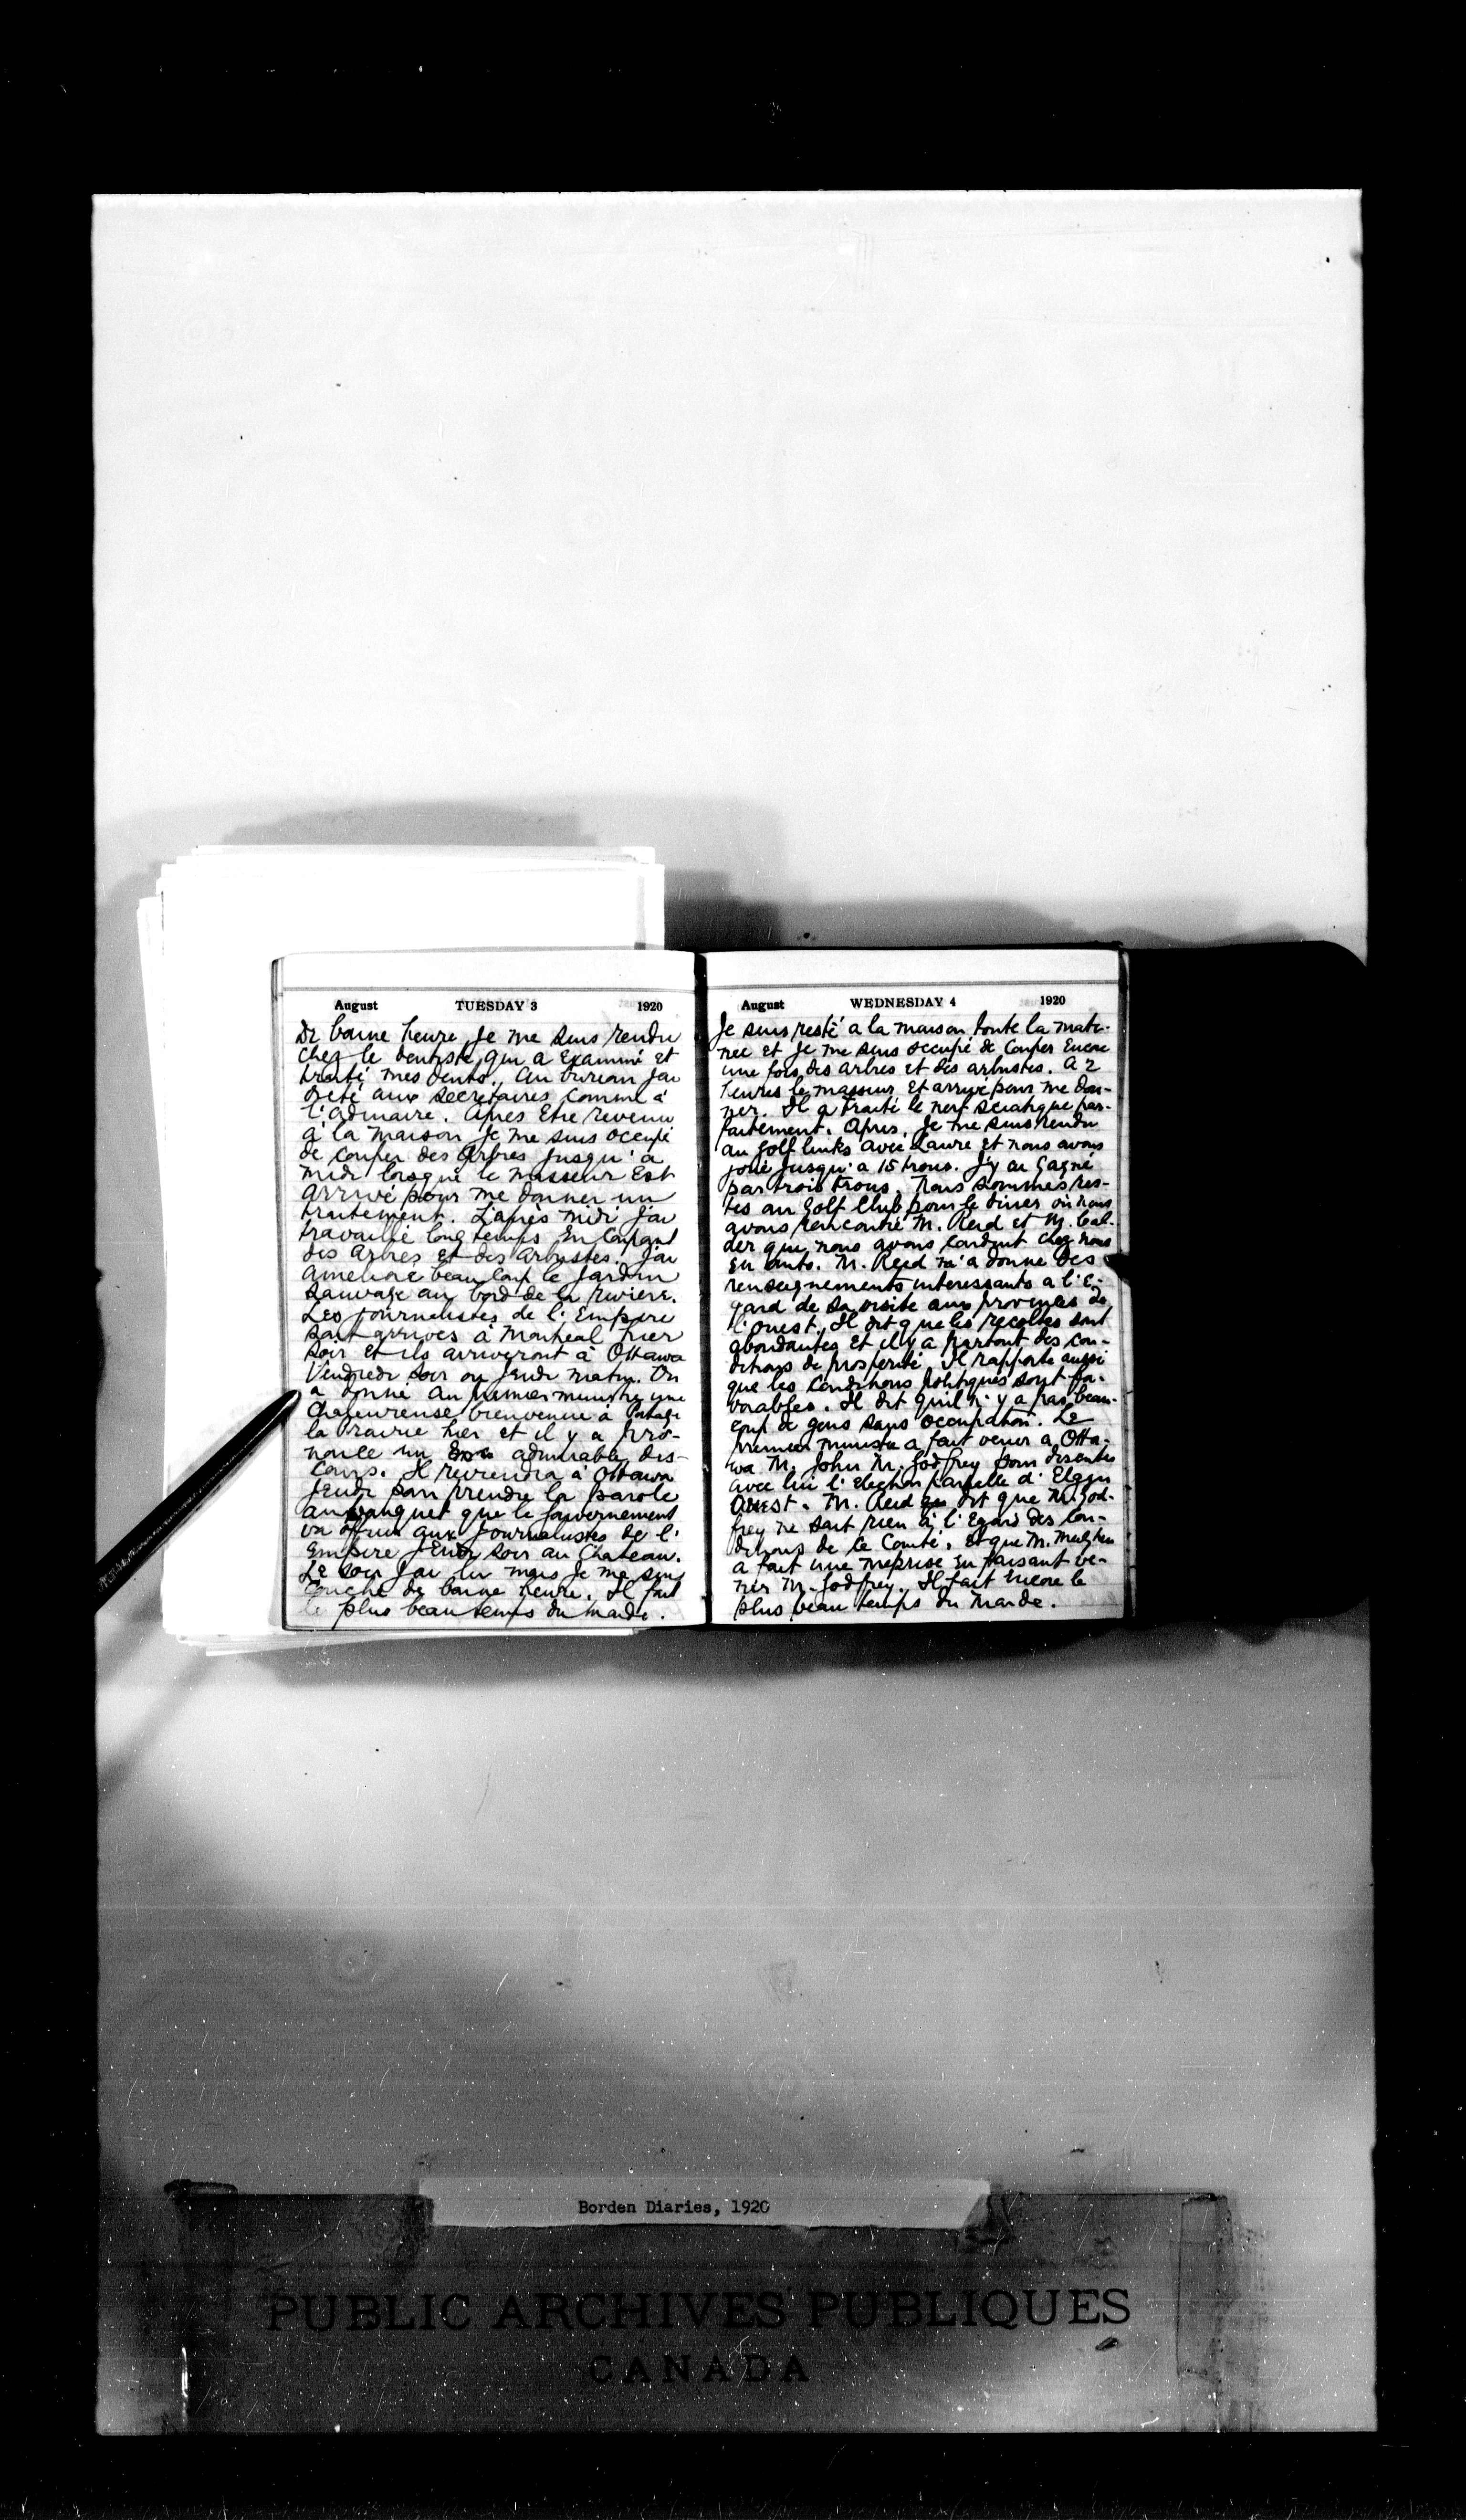 August TUESDAY 3 1920
De bonne heure je me suis rendu
chez le dentiste qui a examiné et
traité mes dents. Au bureau j'ai
dicté aux secretaires comme à
l'ordinaire. Apres être revenu
à la maison je me suis occupé
de couper des arbres jusqu'à
midi lorsque le masseur est
arrivé pour me donner un
traitement. L'après midi j'ai
travaillé longtemps en coupant
des arbres et des arbustes. J'ai
amelioré beaucoup le jardin
sauvage au bord de la riviere.
Les journalistes de l'Empire
sont arrivés à Montreal hier
soir et ils arriveront à Ottawa
Vendredi soir ou jeudi matin. On
a donné au premier ministre une
chaleureuse bienvenue à Portage
la Prairie hier et il y a pro-
noncé un admirable dis-
cours. Il reviendra à Ottawa
jeudi pour prendre la parole
au banquet que le gouvernement
va offrir aux journalistes de l'
Empire jeudi soir au Chateau.
Le soir j'ai lu mais je me suis
couché de bonne heure. Il fait
le plus beau temps du monde.
August WEDNESDAY 4 1920
Je suis resté à la maison toute la mati-
née et je me suis occupé de couper encore
une fois des arbres et des arbustes. A 2
heures le masseur est arrivé pour me don-
ner. Il a traité le nerf sciatique par-
faitement. Apres, je me suis rendu
au golf links avec Laure et nous avons
joué jusqu'à 15 trous. J'y ai gagné
par trois trous. Nous sommes res-
tés au Golf Club pour le diner où nous
avons rencontré M. Reid et M. Cal-
der que nous avons conduit chez nous
en auto. M. Reid m'a donné des
renseignements interessants a l'é-
gard de sa visite aux provinces de
l'ouest. Il dit que les recoltes sont
abondantes et il y a partout des con-
ditions de prosperité. Il rapporte aussi
que les conditions politiques sont fa-
vorables. Il dit qu'il n'y a pas beau-
coup de gens sans occupation. Le
premier ministre a fait venir a Otta-
wa M. John M. Godfrey pour discuter
avec lui l'election partielle d'Elgin
Ouest. M. Reid dit que M. God-
frey ne sait rien à l'egard des con-
ditions de le Comté, et que M. Meighen
a fait une meprise en faisant ve-
nir M. Godfrey. Il fait encore le
plus beau temps du monde.
Borden Diaries, 1920
PUBLIC ARCHIVES PUBLIQUES
CANADA